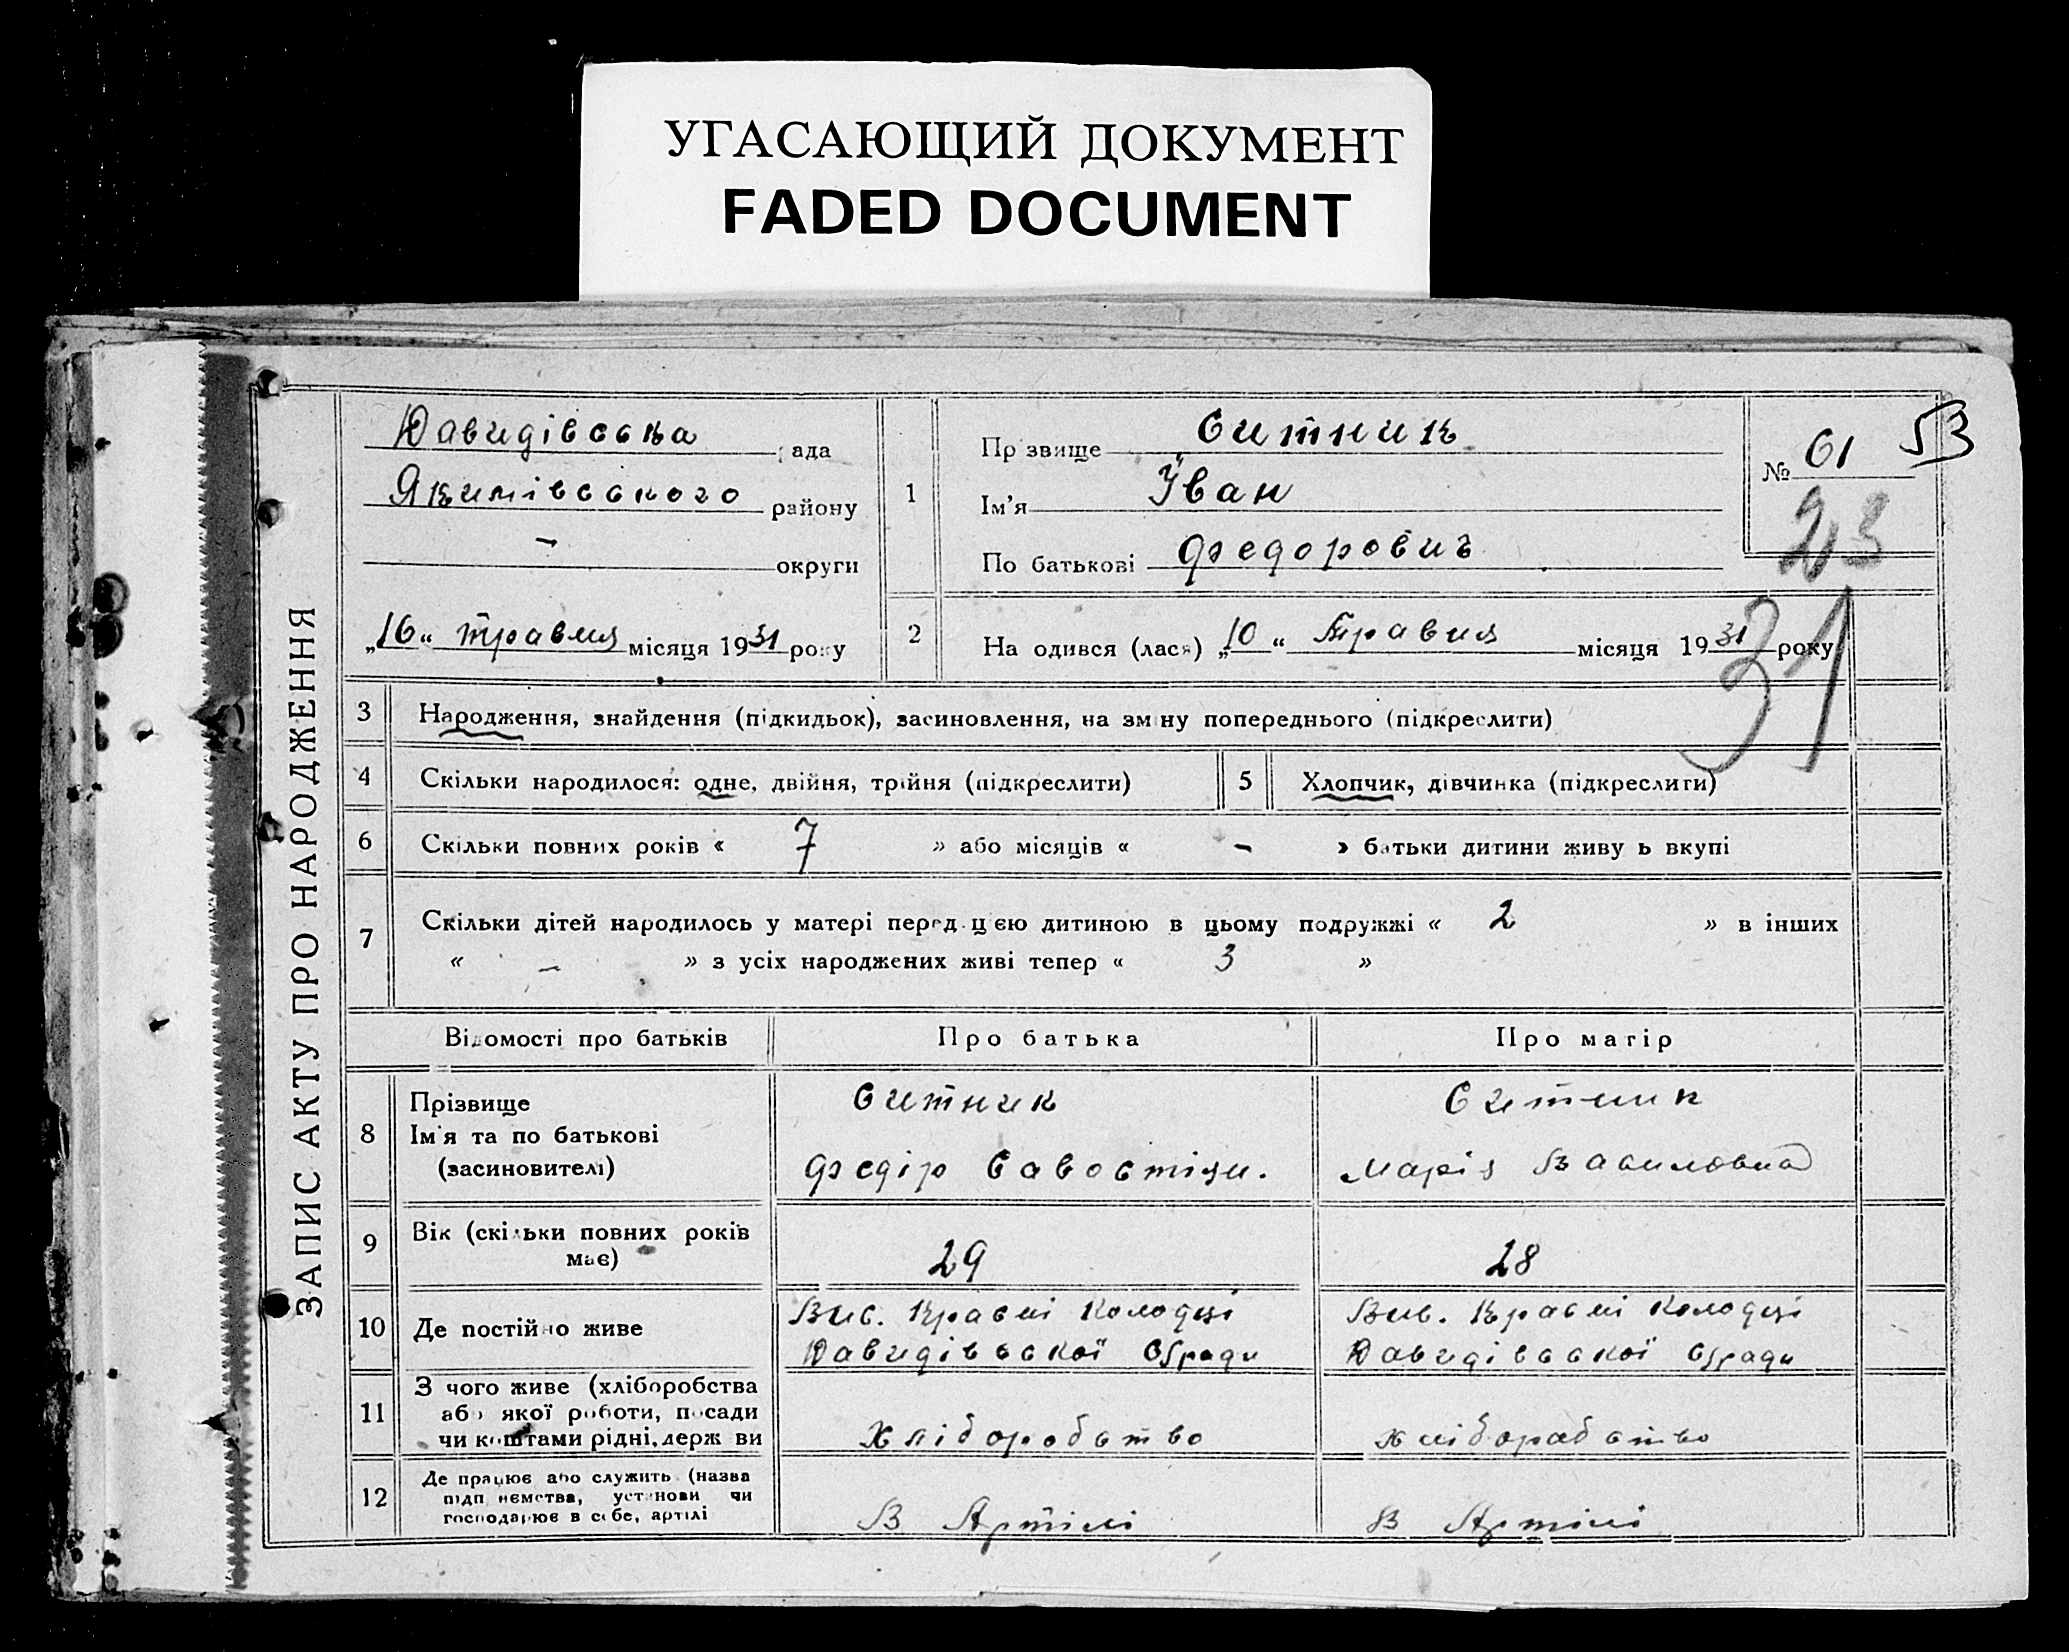 УГАСАЮЩИЙ ДОКУМЕНТ
FADED DOCUMENT
ЗАПИС АКТУ ПРО НАРОДЖЕННЯ
Давидівська рада
Якимівського району
— округи
„16“ травня місяця 1931 року
1
Прізвище Ситник
Ім'я Іван
По батькові Федорович
№ 61 53
23
31
2
На одився (лася) „10“ Травня місяця 1931 року
3 Народження, знайдення (підкидьок), засиновлення, на зміну попереднього (підкреслити)
4 Скільки народилося: одне, двійня, трійня (підкреслити)
5 Хлопчик, дівчинка (підкреслити)
6 Скільки повних років « 7 » або місяців « – » батьки дитини живу ь вкупі
7 Скільки дітей народилось у матері перед цією дитиною в цьому подружжі « 2 » в інших
« – » з усіх народжених живі тепер « 3 »
Відомості про батьків Про батька Про матір
8 Прізвище
Ім'я та по батькові
(засиновителі)
Ситник
Федір Савостіян.
Ситник
Марія Василовна
9 Вік (скільки повних років
має)
29
28
10 Де постійно живе
Вис. Красні Колодці
Давидівської С/ради
Вис. Красні Колодці
Давидівської С/ради
11 З чого живе (хліборобства
або якої роботи, посади
чи коштами рідні, держ ви
хліборобство
хліборобство
12 Де працює або служить (назва
підп иємства, установи чи
господарює в себе, артілі
В Артілі
В Артілі